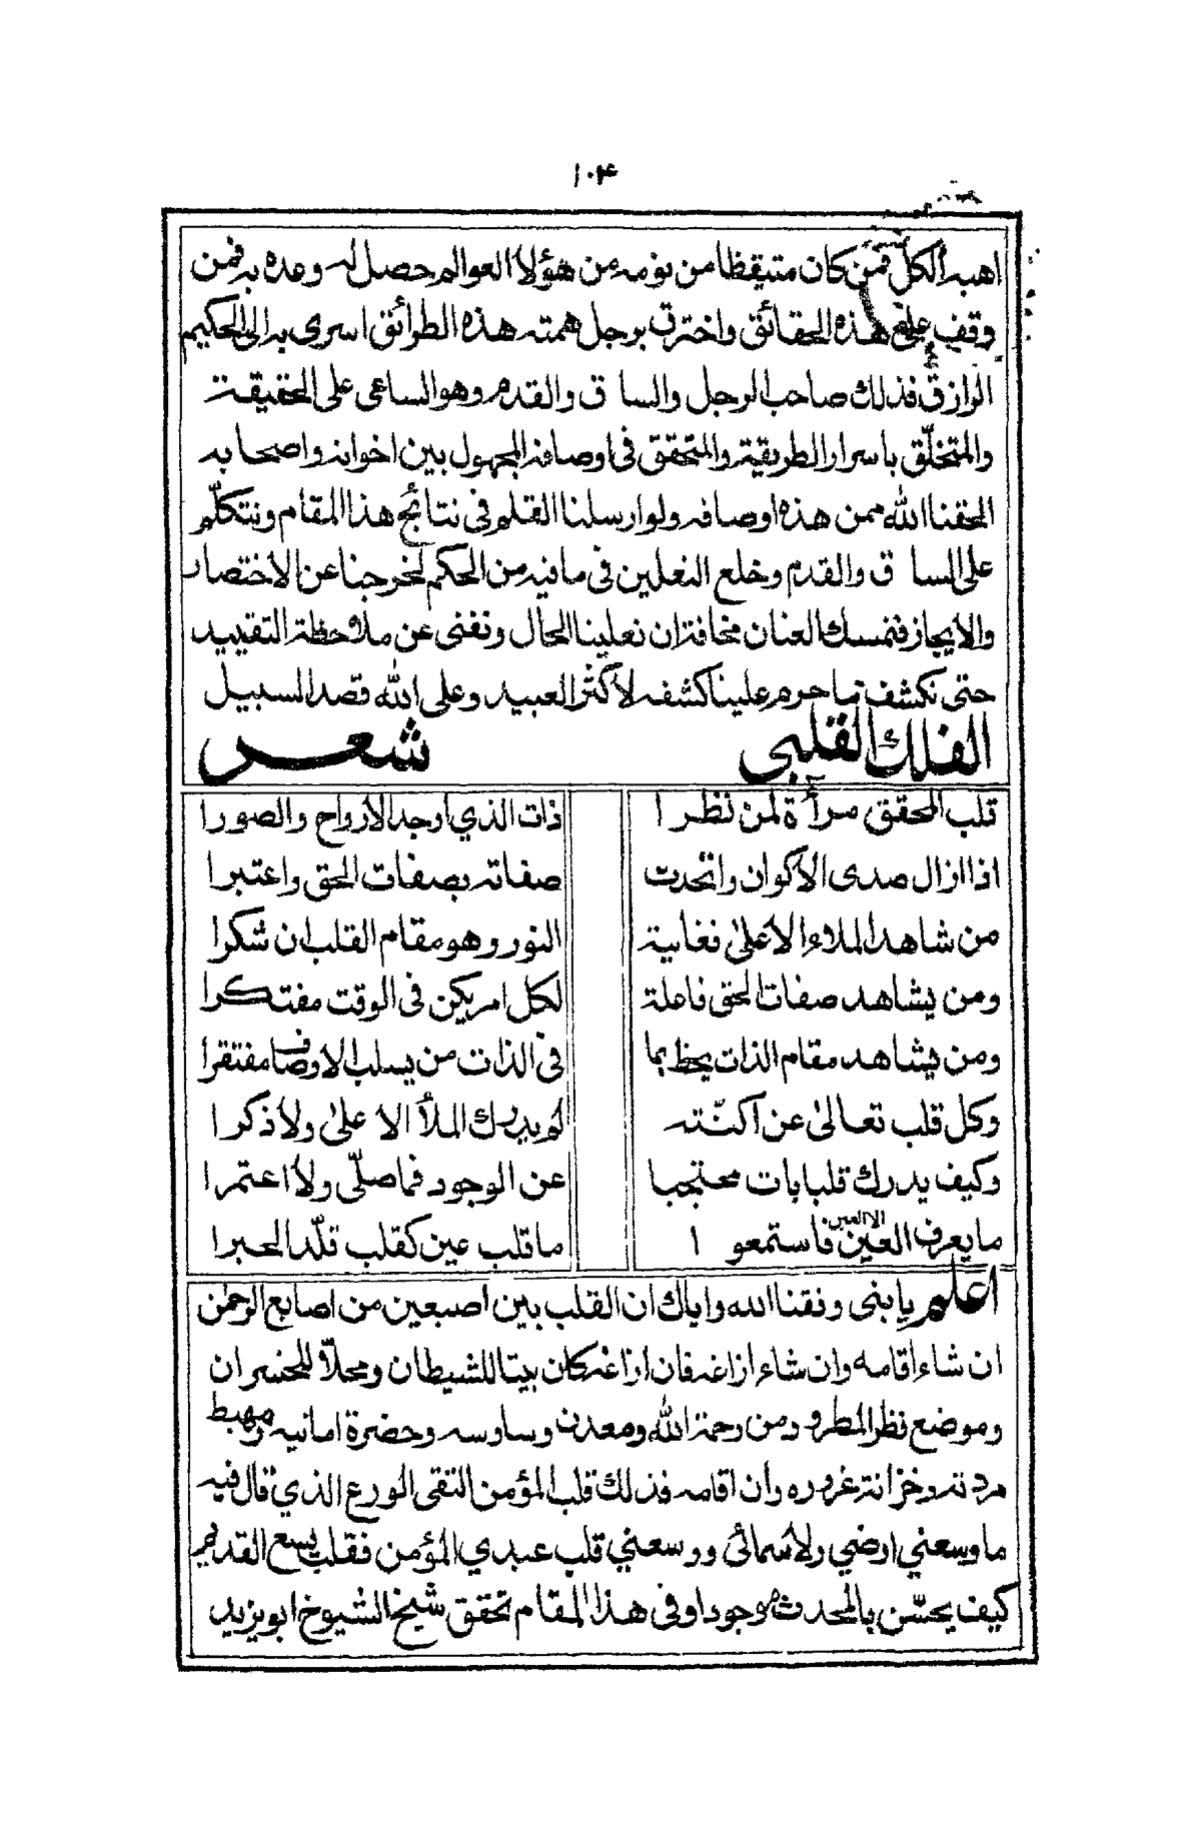 ١٠٤
اهبه الكل فمن كان متيقظا من نومه من هؤلاء العوالم حصل له وعده به فمن
وقف على هذه الحقائق واخترق برجل همته هذه الطرائق اسرى به الى الحكيم
الرازق فذلك صاحب الرجل والساق والقدم وهو الساعى على الحقيقة
والمتخلّق باسرار الطريقة والمتحقق فى اوصافه المجهول بين اخوانه واصحابه
الحقنا الله ممن هذه اوصافه ولو ارسلنا القلم فى نتائج هذا المقام ونتكلّم
على الساق والقدم وخلع النعلين فى ما فيه من الحكم لخرجنا عن الاختصار
والايجاز فنمسك العنان مخافة ان نعلينا الحال ونفنى عن ملاحظة التقييد
حتى نكشف ما حرم علينا كشفه لاكثر العبيد وعلى الله قصد السبيل
الفلك القلبى شعر
قلب المحقق مرأة لمن نظرا ذات الذي اوجد الارواح والصورا
اذا ازال صدى الاكوان واتحدت صفاته بصفات الحق واعتبرا
من شاهد الملاء الاعلى فغايية النور وهو مقام القلب ان شكرا
ومن يشاهد صفات الحق فاعلة لكل امر يكن فى الوقت مفتكرا
ومن يشاهد مقام الذات يحظ بما فى الذات من يسلب الاوصاف مفتقرا
وكل قلب تعالى عن اكنّته لم يدرك الملأ الاعلى ولا ذكرا
وكيف يدرك قلبا بات محتجبا عن الوجود فما صلّى ولا اعتمرا
ما يعرف العين الا العين فاستمعوا ما قلب عين كقلب قلّد الخبرا
اعلم يا بنى وفقنا الله واياك ان القلب بين اصبعين من اصابع الرحمٰن
ان شاء اقامه وان شاء ازاغه فان ازاغه كان بيتا للشيطان ومحلّا للخسران
وموضع نظر المطرود من رحمة الله ومعدن وساوسه وحضرة امانيه ومهبط
مردته وخزانة غروره وان اقامه فذلك قلب المؤمن التقى الورع الذي قال فيه
ما وسعني ارضي ولا سمائى ووسعني قلب عبدي المؤمن فقلب يسع القديم
كيف يحسّن بالمحدث موجودا وفى هذا المقام تحقق شيخ الشيوخ ابو يزيد